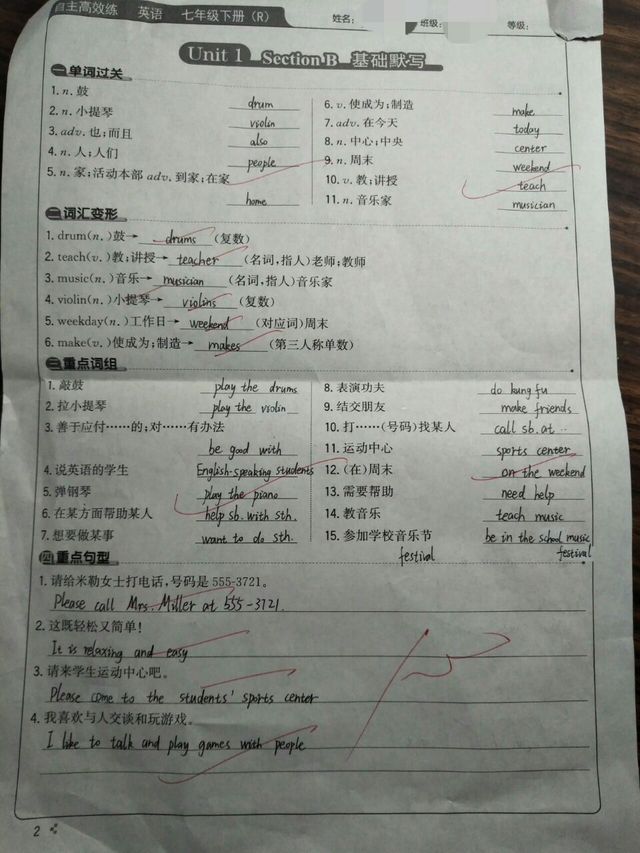 自主高效练 英语 七年级下册（R） 姓名： 班级： 等级：
Unit 1 Section B 基础默写
一 单词过关
1. n. 鼓 drum
2. n. 小提琴 violin
3. adv. 也；而且 also
4. n. 人；人们 people
5. n. 家；活动本部 adv. 到家；在家 home
6. v. 使成为；制造 make
7. adv. 在今天 today
8. n. 中心；中央 center
9. n. 周末 weekend
10. v. 教；讲授 teach
11. n. 音乐家 musician
二 词汇变形
1. drum(n.)鼓→ drums （复数）
2. teach(v.)教；讲授→ teacher （名词，指人）老师；教师
3. music(n.)音乐→ musician （名词，指人）音乐家
4. violin(n.)小提琴→ violins （复数）
5. weekday(n.)工作日→ weekend （对应词）周末
6. make(v.)使成为；制造→ makes （第三人称单数）
三 重点词组
1. 敲鼓 play the drums
2. 拉小提琴 play the violin
3. 善于应付……的；对……有办法
be good with
4. 说英语的学生 English-speaking students
5. 弹钢琴 play the piano
6. 在某方面帮助某人 help sb. with sth.
7. 想要做某事 want to do sth.
8. 表演功夫 do kung fu
9. 结交朋友 make friends
10. 打……（号码）找某人 call sb. at ..
11. 运动中心 sports center
12. （在）周末 on the weekend
13. 需要帮助 need help
14. 教音乐 teach music
15. 参加学校音乐节 be in the school music
festival festival
四 重点句型
1. 请给米勒女士打电话，号码是 555-3721。
Please call Mrs. Miller at 555-3721.
2. 这既轻松又简单！
It is relaxing and easy
3. 请来学生运动中心吧。
Please come to the students' sports center
4. 我喜欢与人交谈和玩游戏。
I like to talk and play games with people
2